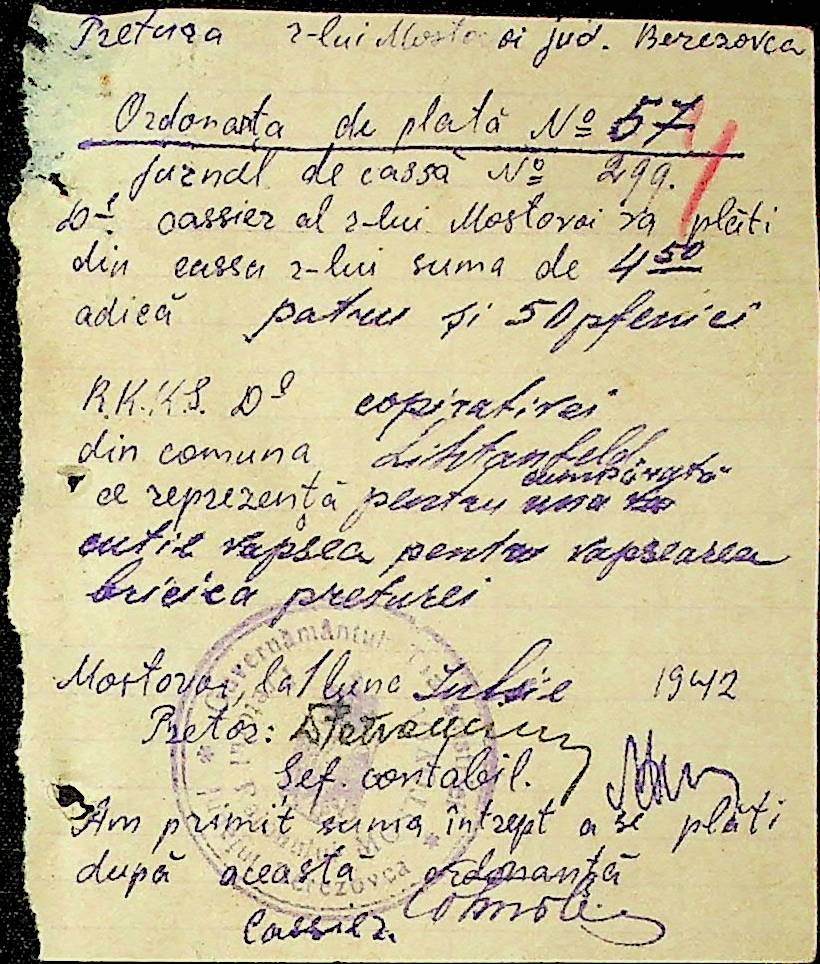 Pretura r-lui Mostovoi jud. Berezovca
Ordonanța de plată № 57
Jurnal de cassă № 299.
D-l cassier al r-lui Mostovoi va plăti
din cassa r-lui suma de 4 50
adică patru și 50 pfenici
R.K.K.S. D-l copirativei
din comuna Lihtanfeld
cumpărată
ce reprezență pentru una
cutie vapsea pentru vapsearea
bricica preturei
Mostovoi, la 1 luna Iulie 1942
Pretor:
Șef. contabil.
Am primit suma întrept a se plăti
după această ordonanță
Cassier.
Guvernământul Transnistriei
Județul Berezovca